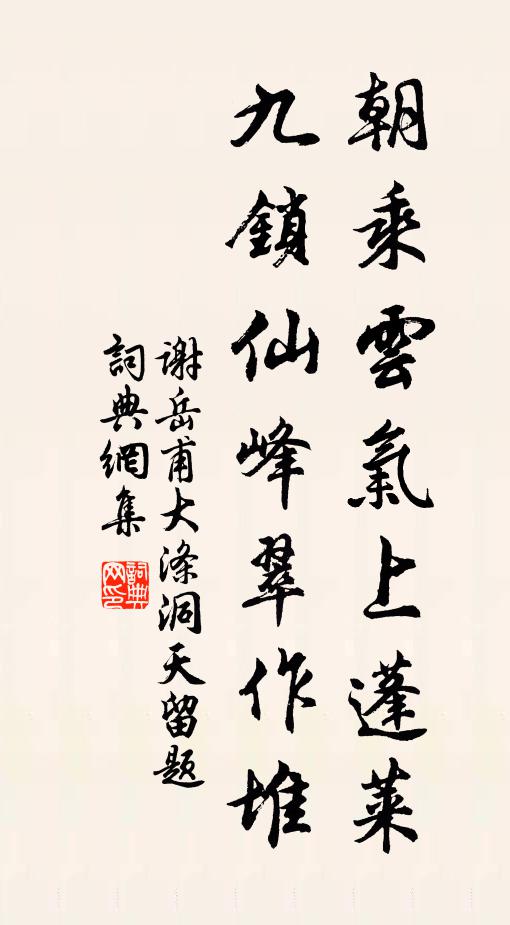 朝乘雲氣上蓬萊
九鎖仙峰翠作堆
謝岳甫大滌洞天留題
詞典網集
詞典
网印